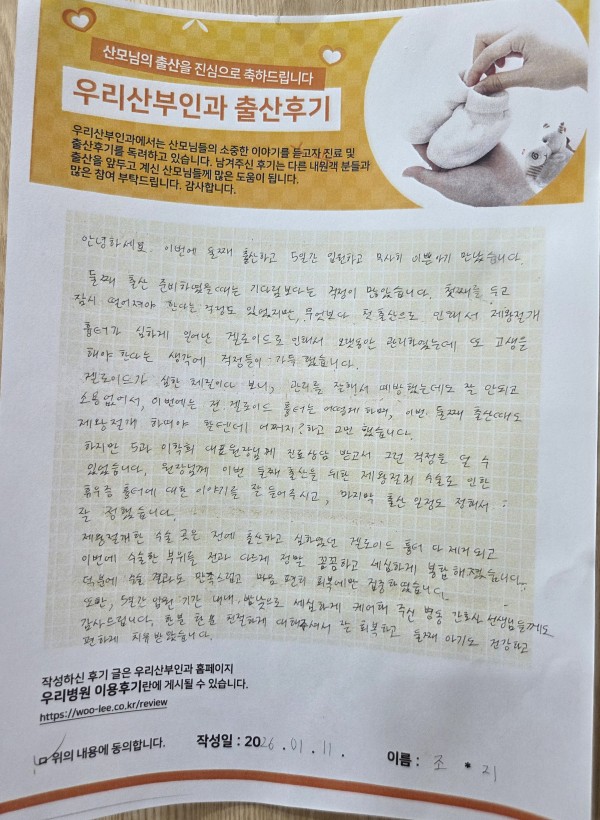 산모님의 출산을 진심으로 축하드립니다
우리산부인과 출산후기
우리산부인과에서는 산모님들의 소중한 이야기를 듣고자 진료 및
출산후기를 독려하고 있습니다. 남겨주신 후기는 다른 내원객 분들과
출산을 앞두고 계신 산모님들께 많은 도움이 됩니다.
많은 참여 부탁드립니다. 감사합니다.
안녕하세요. 이번에 둘째 출산하고 5일간 입원하고 무사히 이쁜아기 만났습니다.
둘째 출산 준비하였을때는 기다림보다는 걱정이 많았습니다. 첫째를 두고
잠시 떨어져야 한다는 걱정도 있었지만, 무엇보다 첫 출산으로 인해서 제왕절개
흉터가 심하게 일어난 켈로이드로 인해서 오랫동안 관리하였는데 또 고생을
해야한다는 생각에 걱정들이 가득 했습니다.
켈로이드가 심한 체질이다 보니, 관리를 잘해서 예방했는데도 잘 안되고
소용없어서, 이번에는 전 켈로이드 흉터는 어떻게 하며, 이번 둘째 출산때도
제왕절개 하며야 할텐데 어쩌지? 하고 고민 했습니다.
하지만 5과 이학희 대표원장님께 진료상담 받고서 그런 걱정을 덜 수
있었습니다. 원장님께 이번 둘째 출산을 위한 제왕절개 수술로 인한
휴우증 흉터에 대한 이야기를 잘 들어주시고, 마지막 출산 일정도 정해서
잘 정했습니다.
제왕절개한 수술 곳은 전에 출산하고 심하였던 켈로이드 흉터 다 제거되고
이번에 수술한 부위들 전과 다르게 정말 꼼꼼하고 세심하게 봉합해졌습니다.
덕분에 수술 결과도 만족스럽고 마음 편히 회복에만 집중하였습니다.
또한, 5일간 입원 기간 내내 밤낮으로 세심하게 케어해 주신 병동 간호사 선생님들께도
감사드립니다. 한분 한분 친절하게 대해주셔서 잘 회복하고 둘째 아기도 건강하고
편하게 치유받았습니다.
작성하신 후기 글은 우리산부인과 홈페이지
우리병원 이용후기란에 게시될 수 있습니다.
https://woo-lee.co.kr/review
위의 내용에 동의합니다.
작성일 : 2026 . 01 . 11 .
이름 : 조 * 지